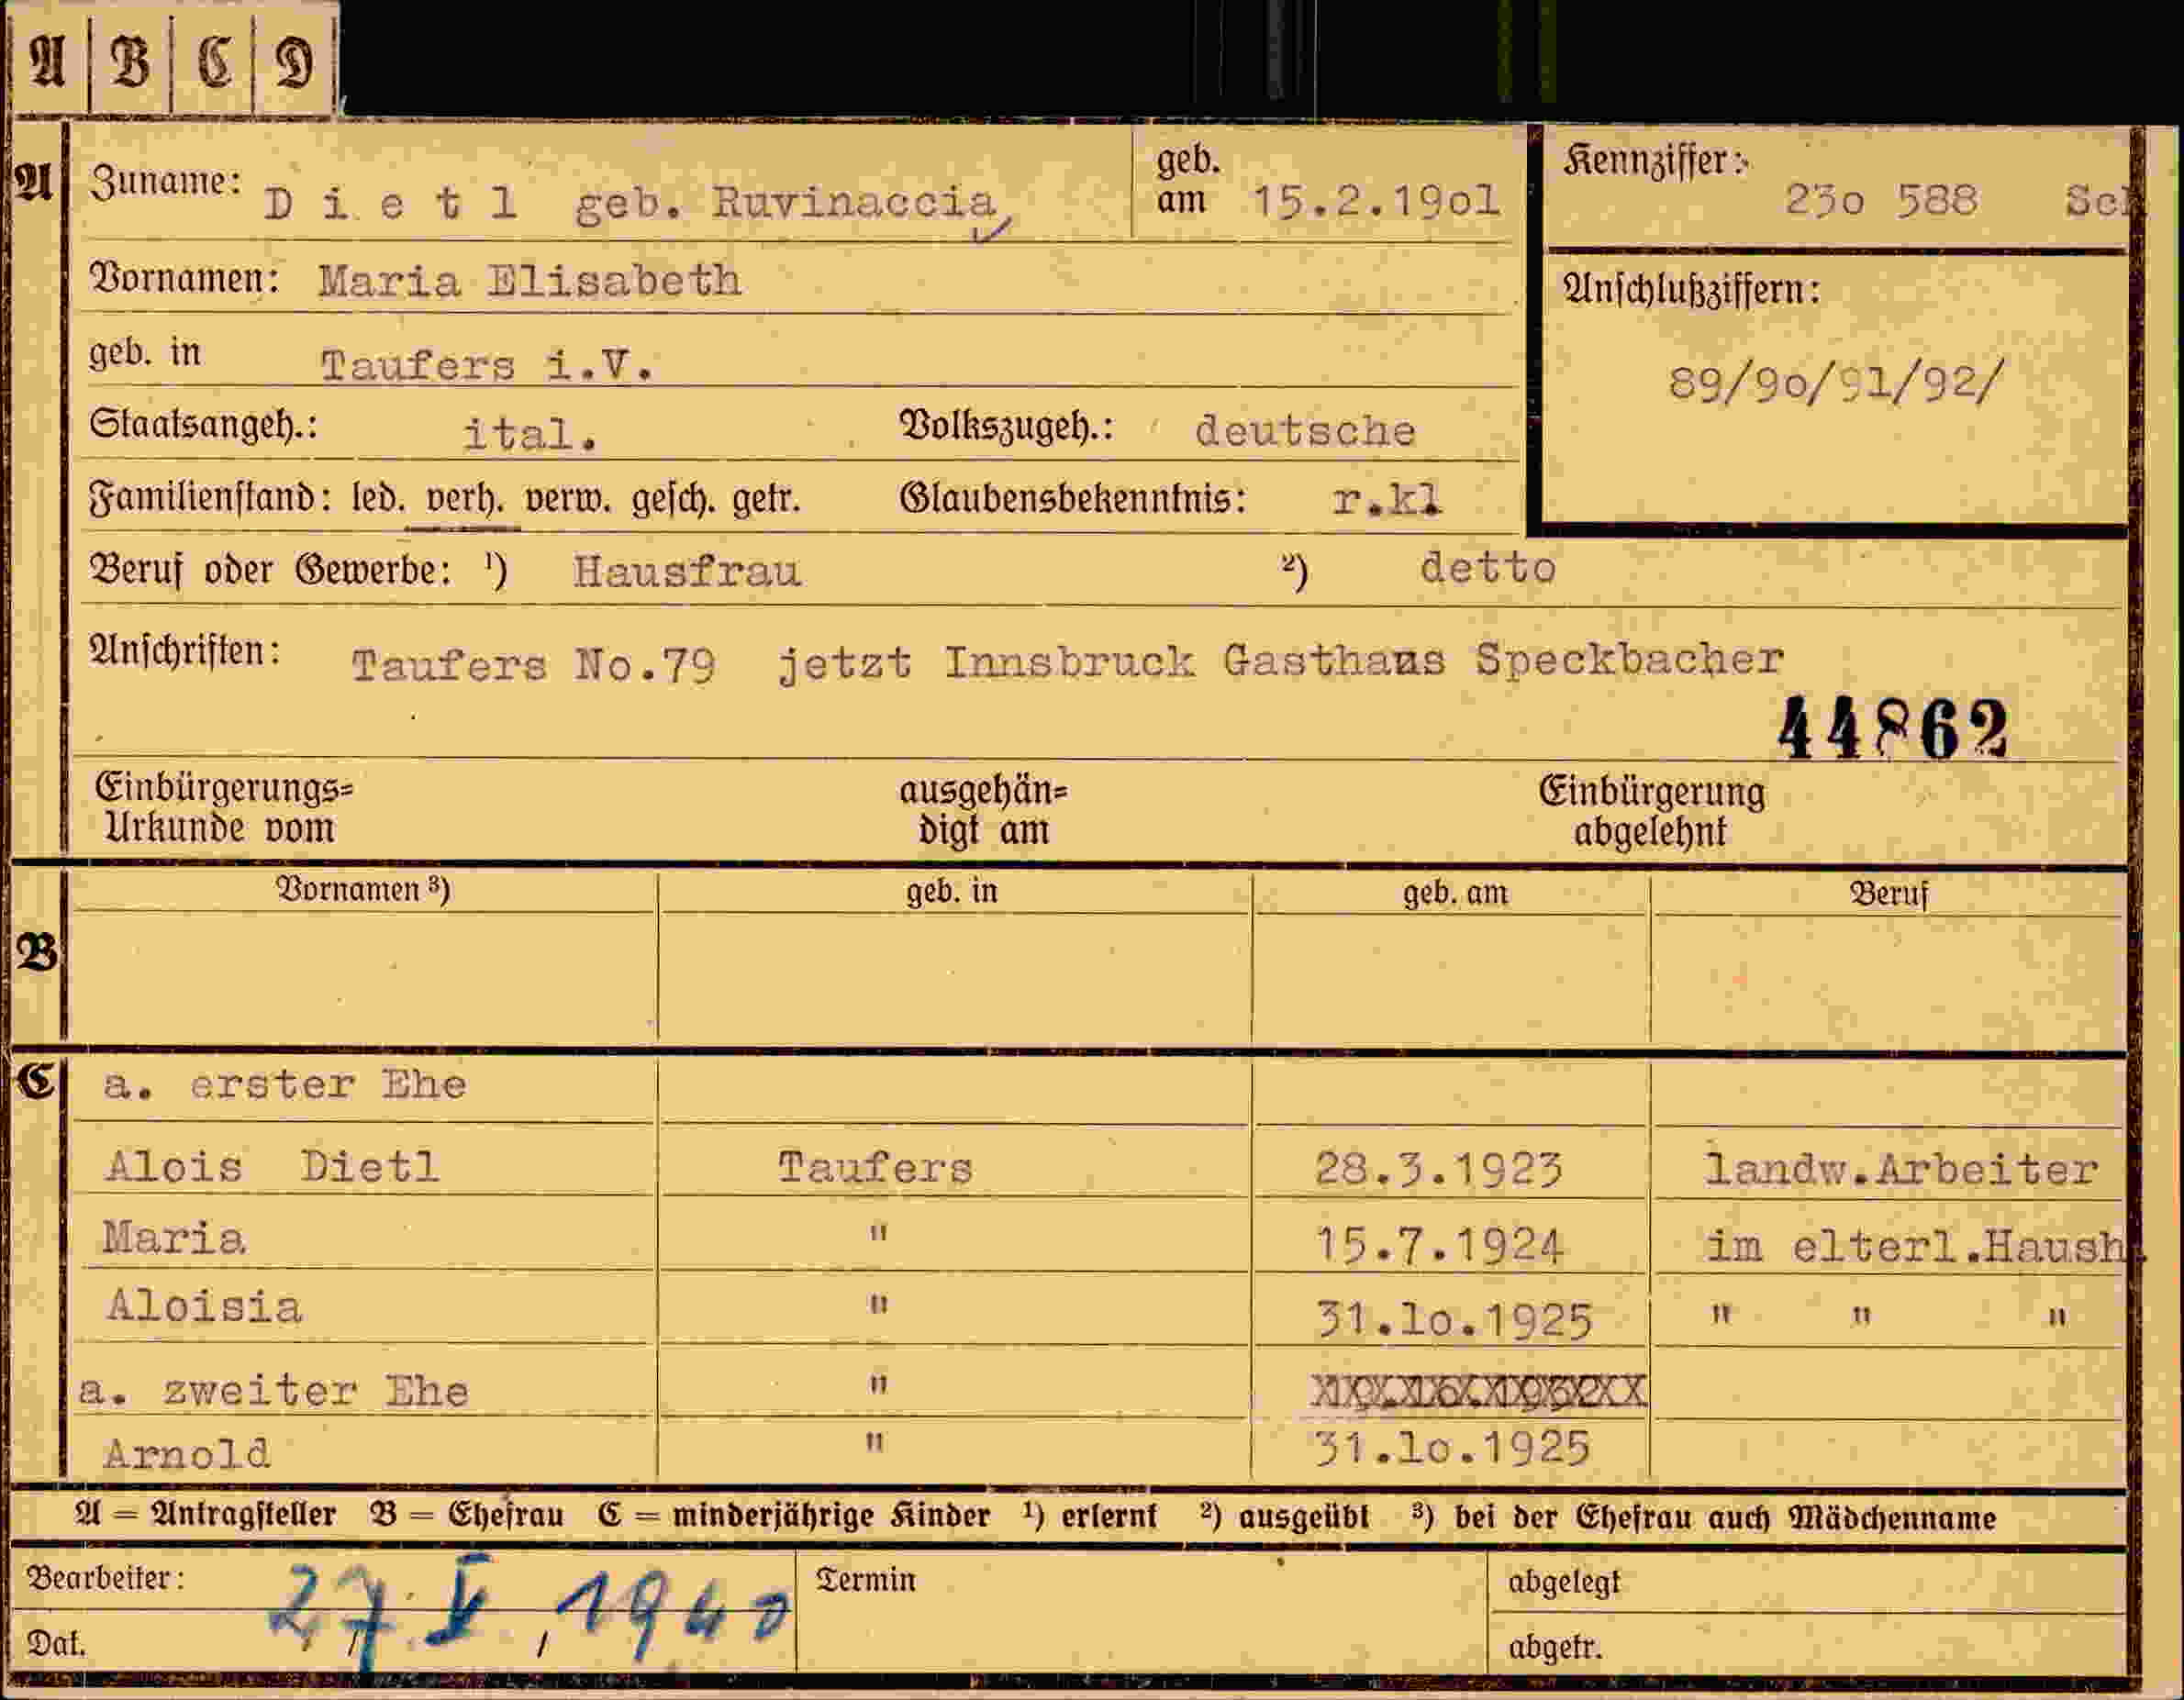 A B C D
A Zuname: D i e t l geb. Ruvinaccia geb. am 15.2.19o1 Kennziffer: 23o 588 Sch
Vornamen: Maria Elisabeth Anschlußziffern:
geb. in Taufers i.V. 89/9o/91/92/
Staatsangeh.: ital. Volkszugeh.: deutsche
Familienstand: led. verh. verw. gesch. getr. Glaubensbekenntnis: r.kl
Beruf oder Gewerbe: ¹) Hausfrau ²) detto
Anschriften: Taufers No.79 jetzt Innsbruck Gasthaus Speckbacher
44862
Einbürgerungs= ausgehän= Einbürgerung
Urkunde vom digt am abgelehnt
Vornamen ³) geb. in geb. am Beruf
B
C a. erster Ehe
Alois Dietl Taufers 28.3.1923 landw.Arbeiter
Maria " 15.7.1924 im elterl.Haush.
Aloisia " 31.1o.1925 " " "
a. zweiter Ehe "
Arnold " 31.1o.1925
A = Antragsteller B = Ehefrau C = minderjährige Kinder ¹) erlernt ²) ausgeübt ³) bei der Ehefrau auch Mädchenname
Bearbeiter: 27. V. 1940 Termin abgelegt
Dat. abgetr.